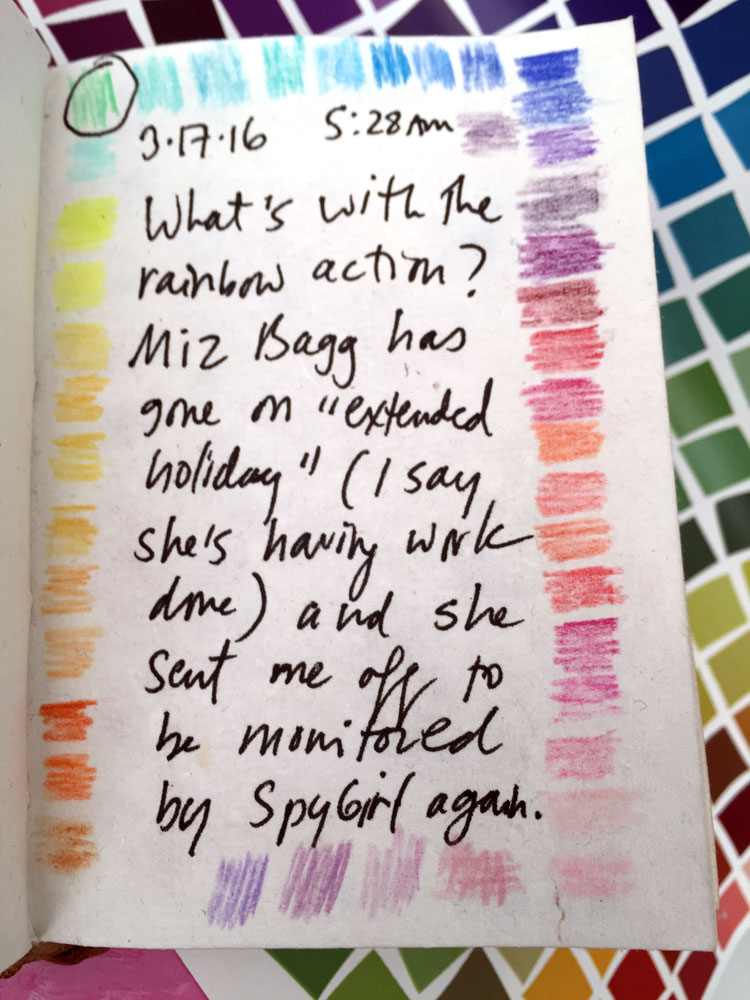 3.17.16 5:28am
What's with the
rainbow action?
Miz Bagg has
gone on "extended
holiday" (I say
she's having work
done) and she
sent me off to
be monitored
by SpyGirl again.